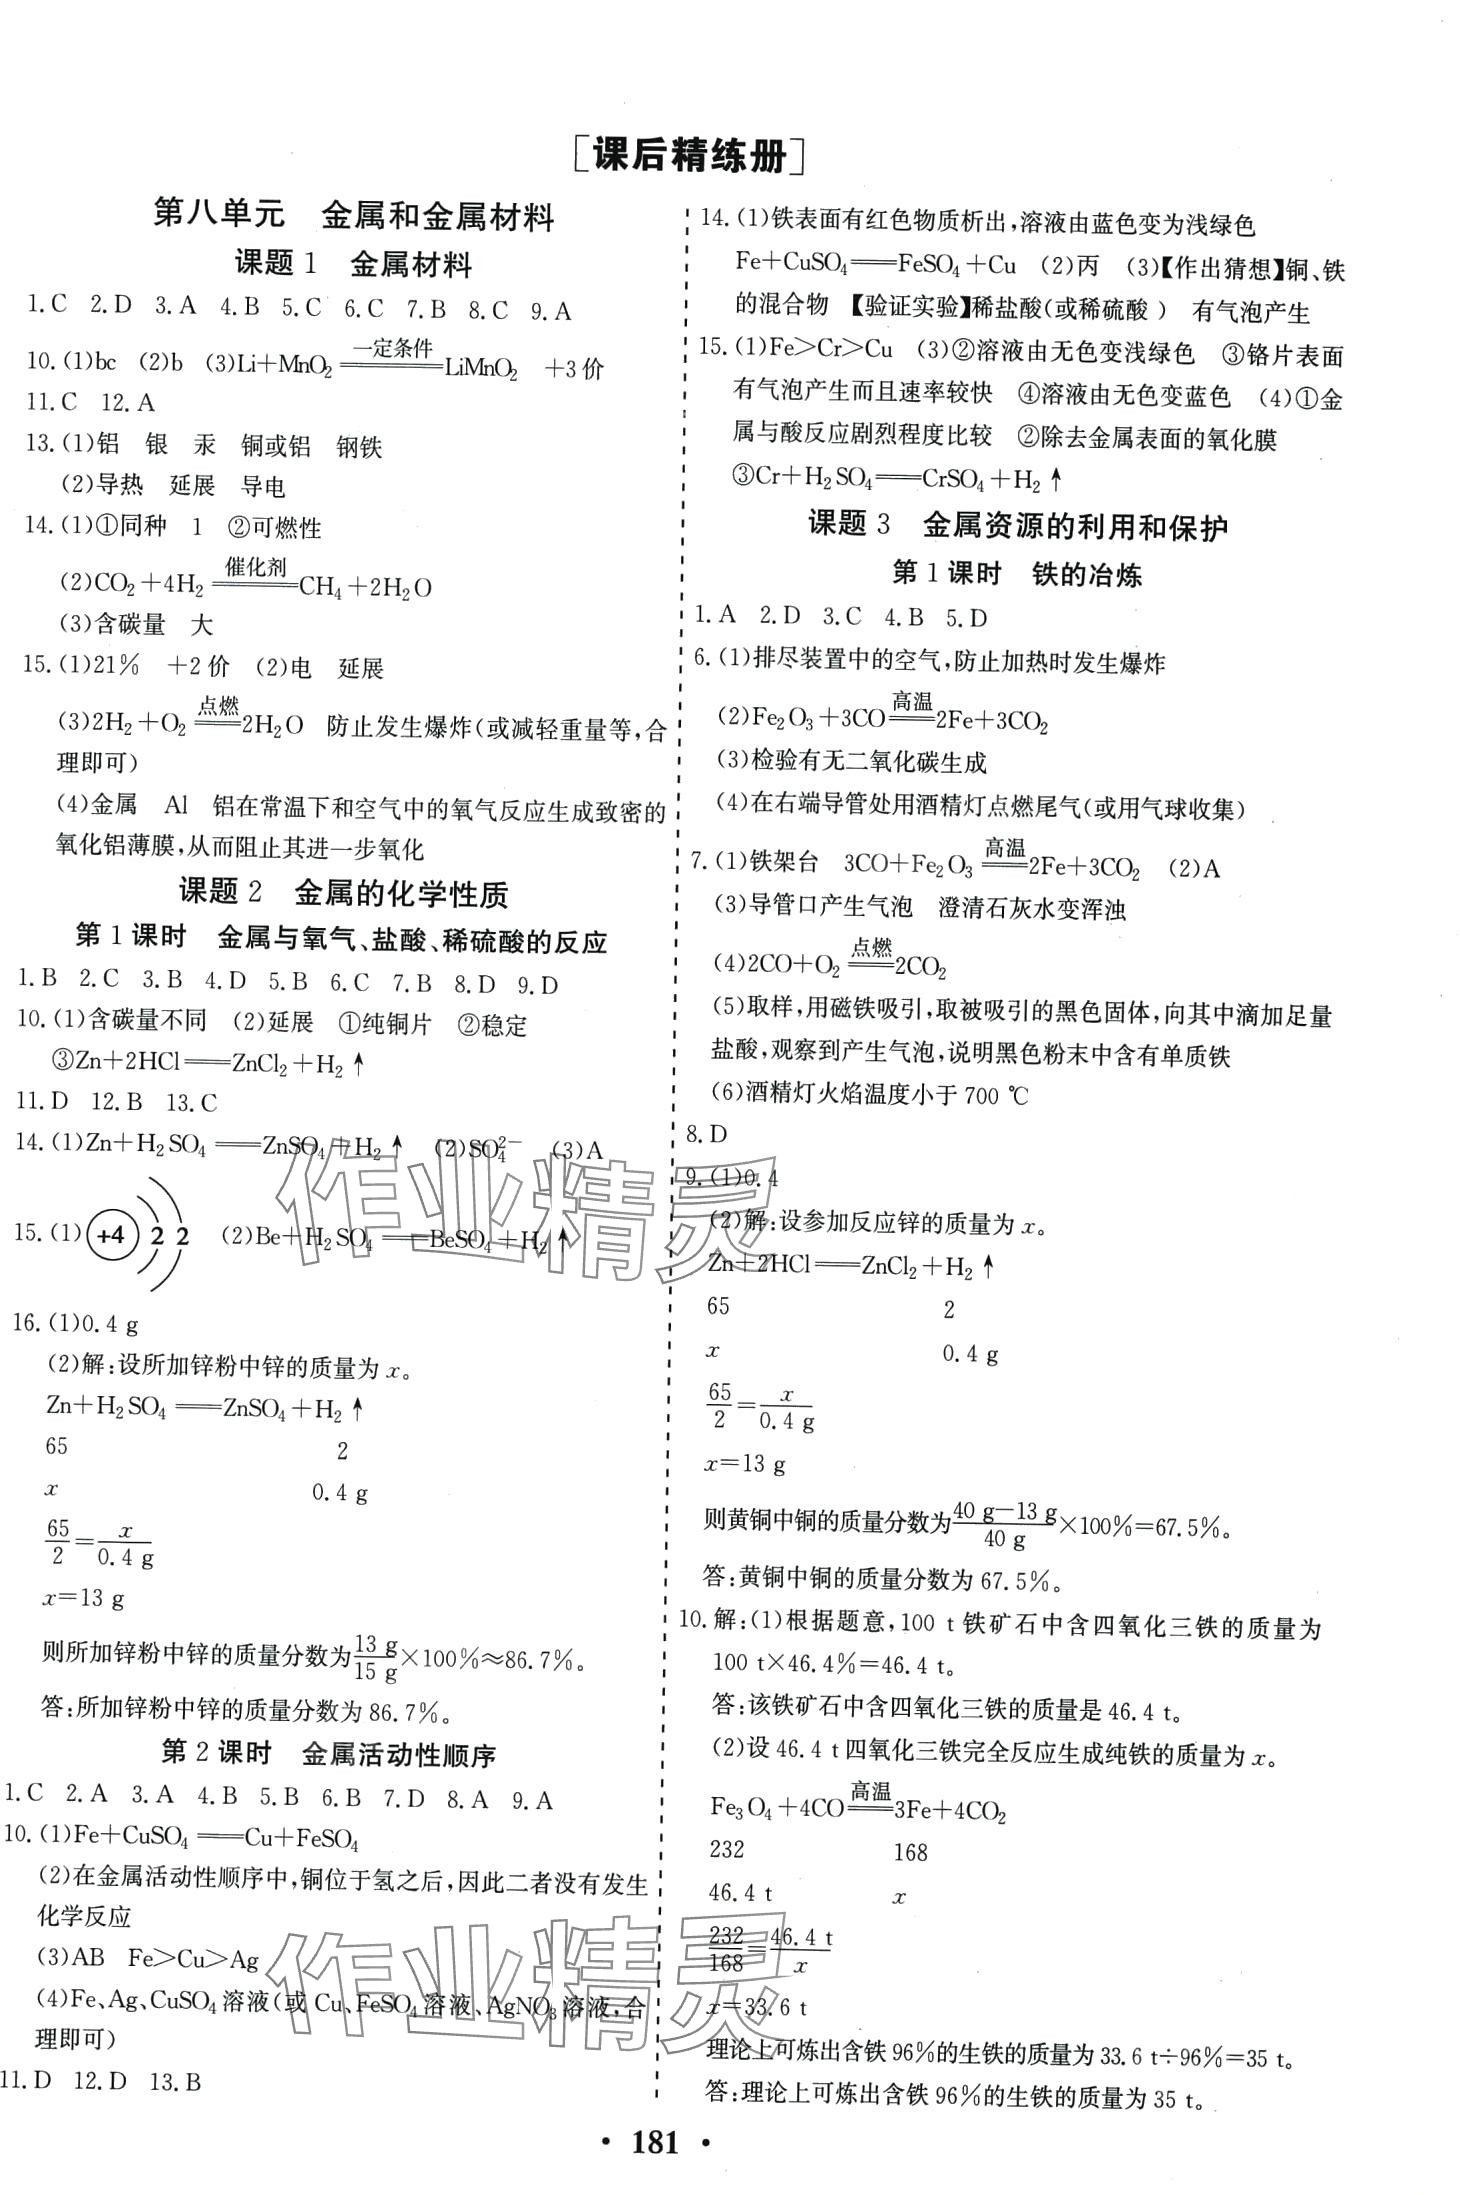 [课后精练册]
第八单元 金属和金属材料
课题1 金属材料
1.C 2.D 3.A 4.B 5.C 6.C 7.B 8.C 9.A
10.(1)bc (2)b (3)Li+MnO₂ 一定条件 LiMnO₂ +3价
11.C 12.A
13.(1)铝 银 汞 铜或铝 钢铁
(2)导热 延展 导电
14.(1)①同种 1 ②可燃性
(2)CO₂+4H₂ 催化剂 CH₄+2H₂O
(3)含碳量 大
15.(1)21% +2价 (2)电 延展
(3)2H₂+O₂ 点燃 2H₂O 防止发生爆炸(或减轻重量等,合
理即可)
(4)金属 Al 铝在常温下和空气中的氧气反应生成致密的
氧化铝薄膜,从而阻止其进一步氧化
课题2 金属的化学性质
第1课时 金属与氧气、盐酸、稀硫酸的反应
1.B 2.C 3.B 4.D 5.B 6.C 7.B 8.D 9.D
10.(1)含碳量不同 (2)延展 ①纯铜片 ②稳定
③Zn+2HCl══ZnCl₂+H₂↑
11.D 12.B 13.C
14.(1)Zn+H₂SO₄══ZnSO₄+H₂↑ (2)SO₄²⁻ (3)A
15.(1) +4 2 2 (2)Be+H₂SO₄══BeSO₄+H₂↑
16.(1)0.4 g
(2)解:设所加锌粉中锌的质量为x。
Zn+H₂SO₄══ZnSO₄+H₂↑
65 2
x 0.4 g
65/2=x/0.4 g
x=13 g
则所加锌粉中锌的质量分数为13 g/15 g×100%≈86.7%。
答:所加锌粉中锌的质量分数为86.7%。
第2课时 金属活动性顺序
1.C 2.A 3.A 4.B 5.B 6.B 7.D 8.A 9.A
10.(1)Fe+CuSO₄══Cu+FeSO₄
(2)在金属活动性顺序中,铜位于氢之后,因此二者没有发生
化学反应
(3)AB Fe>Cu>Ag
(4)Fe、Ag、CuSO₄溶液(或Cu、FeSO₄溶液、AgNO₃溶液,合
理即可)
11.D 12.D 13.B
14.(1)铁表面有红色物质析出,溶液由蓝色变为浅绿色
Fe+CuSO₄══FeSO₄+Cu (2)丙 (3)【作出猜想】铜、铁
的混合物 【验证实验】稀盐酸(或稀硫酸) 有气泡产生
15.(1)Fe>Cr>Cu (3)②溶液由无色变浅绿色 ③铬片表面
有气泡产生而且速率较快 ④溶液由无色变蓝色 (4)①金
属与酸反应剧烈程度比较 ②除去金属表面的氧化膜
③Cr+H₂SO₄══CrSO₄+H₂↑
课题3 金属资源的利用和保护
第1课时 铁的冶炼
1.A 2.D 3.C 4.B 5.D
6.(1)排尽装置中的空气,防止加热时发生爆炸
(2)Fe₂O₃+3CO 高温 2Fe+3CO₂
(3)检验有无二氧化碳生成
(4)在右端导管处用酒精灯点燃尾气(或用气球收集)
7.(1)铁架台 3CO+Fe₂O₃ 高温 2Fe+3CO₂ (2)A
(3)导管口产生气泡 澄清石灰水变浑浊
(4)2CO+O₂ 点燃 2CO₂
(5)取样,用磁铁吸引,取被吸引的黑色固体,向其中滴加足量
盐酸,观察到产生气泡,说明黑色粉末中含有单质铁
(6)酒精灯火焰温度小于700 ℃
8.D
9.(1)0.4
(2)解:设参加反应锌的质量为x。
Zn+2HCl══ZnCl₂+H₂↑
65 2
x 0.4 g
65/2=x/0.4 g
x=13 g
则黄铜中铜的质量分数为40 g-13 g/40 g×100%=67.5%。
答:黄铜中铜的质量分数为67.5%。
10.解:(1)根据题意,100 t铁矿石中含四氧化三铁的质量为
100 t×46.4%=46.4 t。
答:该铁矿石中含四氧化三铁的质量是46.4 t。
(2)设46.4 t四氧化三铁完全反应生成纯铁的质量为x。
Fe₃O₄+4CO 高温 3Fe+4CO₂
232 168
46.4 t x
232/168=46.4 t/x
x=33.6 t
理论上可炼出含铁96%的生铁的质量为33.6 t÷96%=35 t。
答:理论上可炼出含铁96%的生铁的质量为35 t。
作业精灵
作业精灵
• 181 •